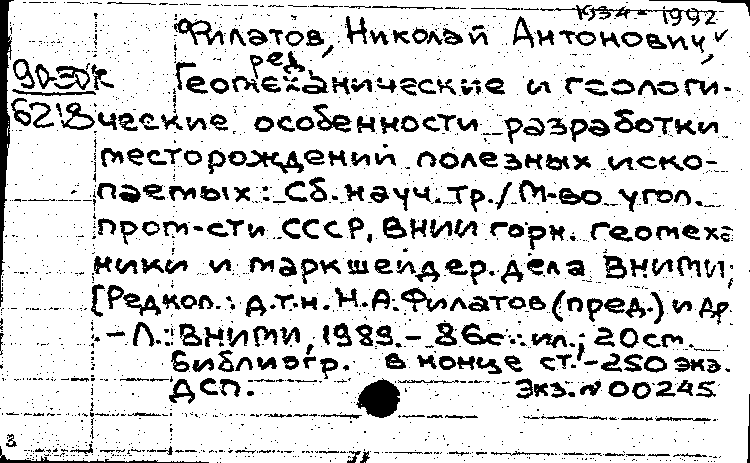 1934 - 1992
Филатов, Николай Антонович,
ред.
90-30К
621.8
Геомеханические и геологи-
ческие особенности разработки
месторождений полезных иско-
паемых: Сб. науч. тр./ М-во угол.
пром-сти СССР, ВНИИ горн. геомеха
ники и маркшейдер. дела ВНИМИ;
[Редкол.: д.т.н. Н.А. Филатов (пред.) и др
. - Л.: ВНИМИ, 1989. - 86с.: ил.; 20см.
Библиогр. в конце ст. - 250 экз.
ДСП. Экз. № 00245